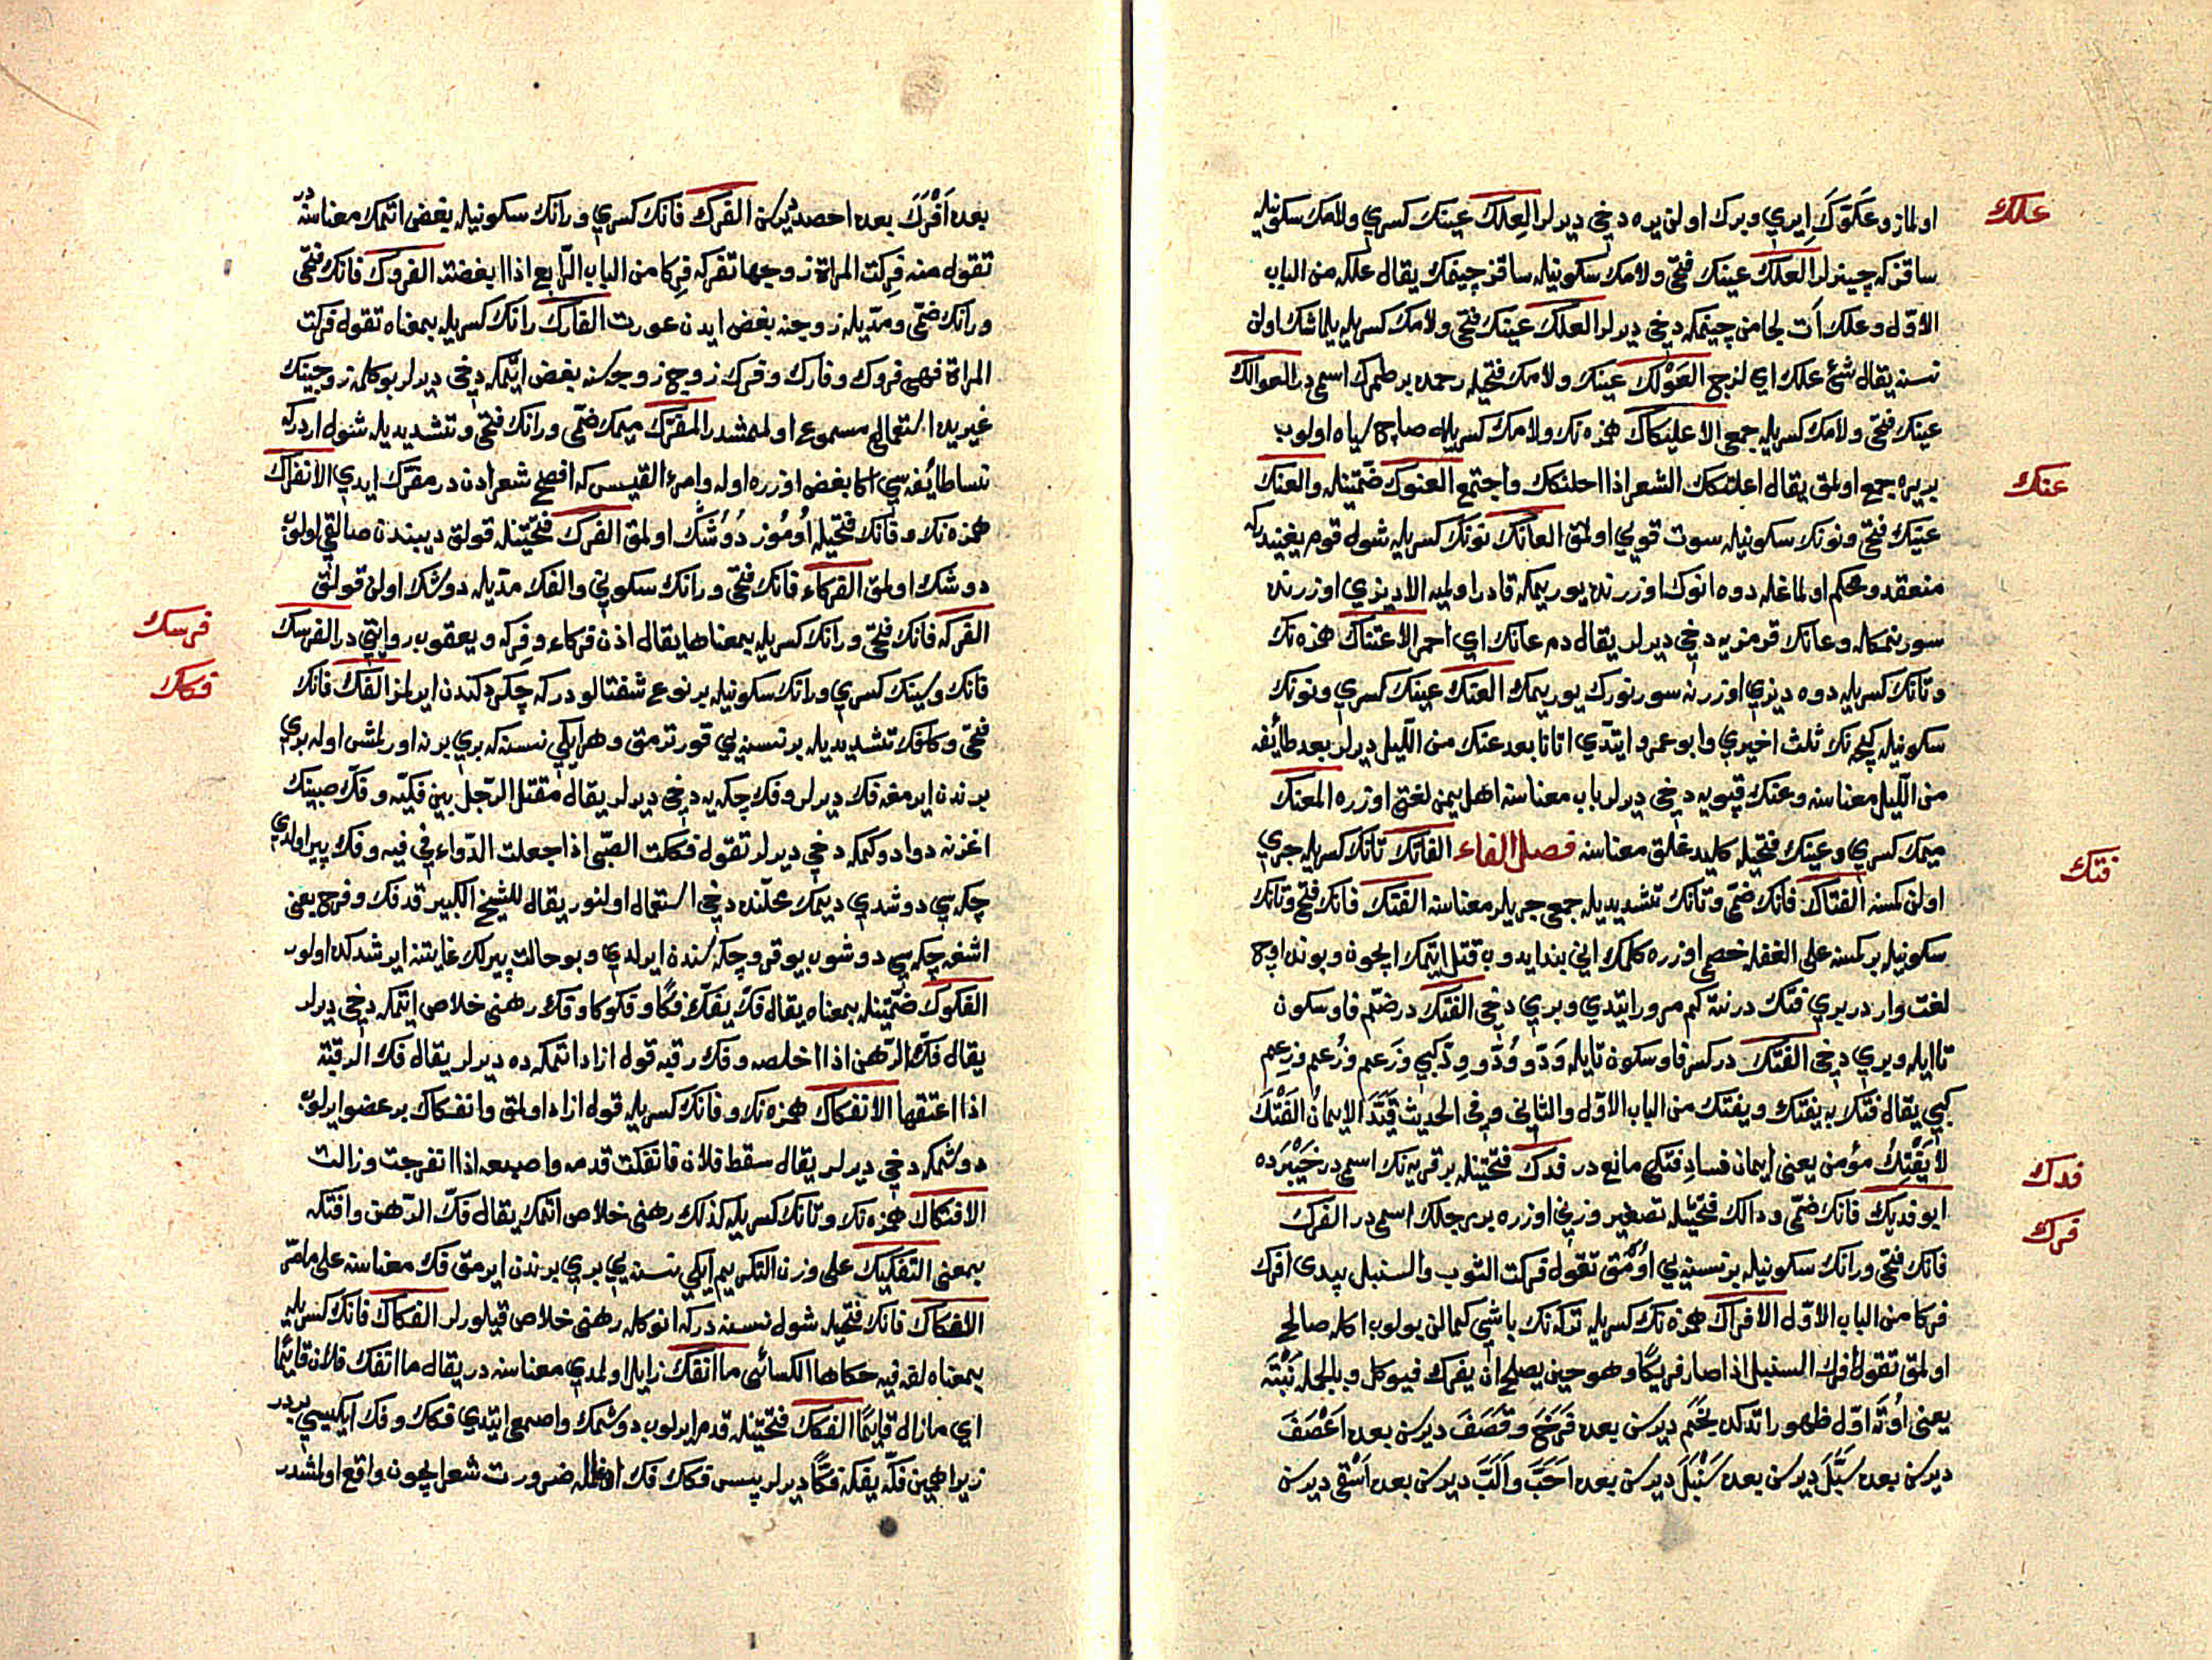 علك
اولماز وعكوك ايري ويرك اولن يره دخي ديرلر العلك عينك كسري ولامك سكونيله
ساقزكه چينرلر العلك عينك فتحى ولامك سكونيله ساقز چينمك يقال علكه من الباب
الاول وعلك آت لجامن چينمكه دخي ديرلر العلك عينك فتحى ولامك كسريله يلماشك اولن
نسنه يقال شئ علك اي لزج العولك عينك ولامك فتحيله رحمده بر طمرك اسمى در العوالك
عينك فتحى ولامك كسريله جمعى الاعلنكاك همزه نك ولامك كسريله صاچ سياه اولوب
عنك
بريره جمع اولمق يقال اعلنكك الشعر اذا احلنكك واجتمع العنوك ضمتينله والعنك
عينك فتحى ونونك سكونيله سوت قوي اولمق العانك نونك كسريله شول قوم يغينيدركه
منعقد ومحكم اولماغله دوه انوك اوزرنده يوريمكه قادر اولميه الا ديزي اوزرنده
سورنمكله وعانك قرمزيه دخي ديرلر يقال دم عانك اي احمر الاعتناك همزه نك
وتانك كسريله دوه ديزي اوزرنه سورنورك يوريمك العنك عينك كسري ونونك
سكونيله كيجه نك ثلث اخيري وابو عمرو ايتدي اتانا بعد عنك من الليل ديرلر بعد طائفه
من الليل معناسنه وعنك قپويه دخي ديرلر باب معناسنه اهل يمن لغتى اوزره المعنك
ميمك كسري وعينك فتحيله كليد غلق معناسنه فصل الفاء الفاتك تانك كسريله جري
فتك
اولن كمسنه الفتاك فانك ضمى وتانك تشديديله جمعى جريلر معناسنه الفتك فانك فتحى وتانك
سكونيله بر كمسنه على الغفله خصمى اوزره كلمك انى بند ايدوب قتل ايتمك ايچون وبونده اوچ
لغت وار در بري فتك درنته كم مرور ايتدي وبري دخي الفتك در ضم فا وسكون
تا ايله وبري دخي الفتك در كسر فا وسكون تا ايله ود وود وود كبي وزعم وزعم وزعم
كبي يقال فتك به يفتك ويفتك من الباب الاول والثاني وفي الحديث قيد الايمان الفتك
لا يفتك مؤمن يعنى ايمان فساد فتكى مانع در فدك فتحتينله بر قريه نك اسمى در خيبرده
فدك
ابو فديك فانك ضمى ودالك فتحيله تصغير وزنى اوزره بر رجلك اسمى در الفرك
فرك
فانك فتحى ورانك سكونيله بر نسنه يي اومق تقول فركت الثوب والسنبل بيدى افرك
فركا من الباب الاول الافراك همزه نك كسريله تركه نك باشى كمالن بولوب اكله صالح
اولمق تقول افرك السنبل اذا صار فريكا وهو حين يصلح ان يفرك فيوكل وبالجمله نبته
يعنى اوته اول ظهور ايتدكده نجم ديرسن بعده فرخ وقصف ديرسن بعده اعصف
ديرسن بعده سبل ديرسن بعده سنبل ديرسن بعده احب والب ديرسن بعده اسقى ديرسن
بعده افرك بعده احصد ديرسن الفرك فانك كسري ورانك سكونيله بغض اتمك معناسنه در
تقول منه فركت المراة زوجها تفركه فركا من الباب الرابع اذا ابغضته الفروك فانك فتحى
ورانك ضمى ومديله زوجنه بغض ايدن عورت الفارك رانك كسريله بمعناه تقول فركت
المراة فهى فروك وفارك وفرك زوج زوجه سنه بغض ايتمكه دخي ديرلر بو كلمه زوجينك
غيريده استعمالى مسموع اولنمشدر المفرك ميمك ضمى ورانك فتحى وتشديديله شول ار دركه
نسا طايفه سي اكا بغض اوزره اوله وامرئ القيس كه افصح شعرادن در مفرك ايدي الانفراك
همزه نك وفانك فتحيله اوموز دوشك اولمق الفرك فتحتينله قولق ديبندن صالقى اولوب
دوشك اولمق الفركاء فانك فتحى ورانك سكوني والفك مديله دوشك اولن قولق
فرسك
الفركه فانك فتحى ورانك كسريله بمعناها يقال اذن فركاء وفركه ويعقوب روايتى در الفرسك
فكك
فانك وسينك كسري ورانك سكونيله بر نوع شفتالو دركه چكردكندن ايرلمز الفك فانك
فتحى وكافك تشديديله بر نسنه يي قورتارمق وهر ايكي نسنه كه بري برنه اورلمش اوله بري
برندن ايرمغه فك ديرلر وفك چكه يه دخي ديرلر يقال مقتل الرجل بين فكيه وفك صبينك
اغزنه دوا دوكمكه دخي ديرلر تقول فككت الصبى اذا جعلت الدواء في فيه وفك پير اولدي
چكه سي دوشدي ديمك محلنده دخي استعمال اولنور يقال للشيخ الكبير قد فك وفرج يعنى
اشغه چكه سي دوشوب يوقرو چكه سندن ايرلدي وبو حالت پيرلك غايتنه ايرشدكده اولور
الفكوك ضمتينله بمعناه يقال فك يفك فكا وفكوكا وفك رهنى خلاص ايتمكه دخي ديرلر
يقال فك الرهن اذا اخلصه وفك رقبه قول ازاد اتمكه ده ديرلر يقال فك الرقبة
اذا اعتقها الانفكاك همزه نك وفانك كسريله قول ازاد اولمق وانفكاك بر عضو ايرلوب
دوشمكه دخي ديرلر يقال سقط فلان فانفكت قدمه واصبعه اذا انفرجت وزالت
الافتكاك همزه نك وتانك كسريله كذلك رهنى خلاص اتمك يقال فك الرهن وافتكه
بمعنى التفكيك على وزن التكريم ايكي نسنه يي بري برندن ايرمق فك معناسنه على ما مر
الفكاك فانك فتحيله شول نسنه دركه انوكله رهنى خلاص قيلورلر الفكاك فانك كسريله
بمعناه لغه فيه حكاها الكسائى ما انفك زايل اولمدي معناسنه در يقال ما انفك فلان قائما
اي مازال قايما الفكك فتحتينله قدم ايرلوب دوشمك واصمعى ايتدي فكك وفك ايكيسي بر در
زيرا همين فكه يفكه فكا ديرلر پس فكك فك اوغلله ضرورت شعر ايچون واقع اولمشدر